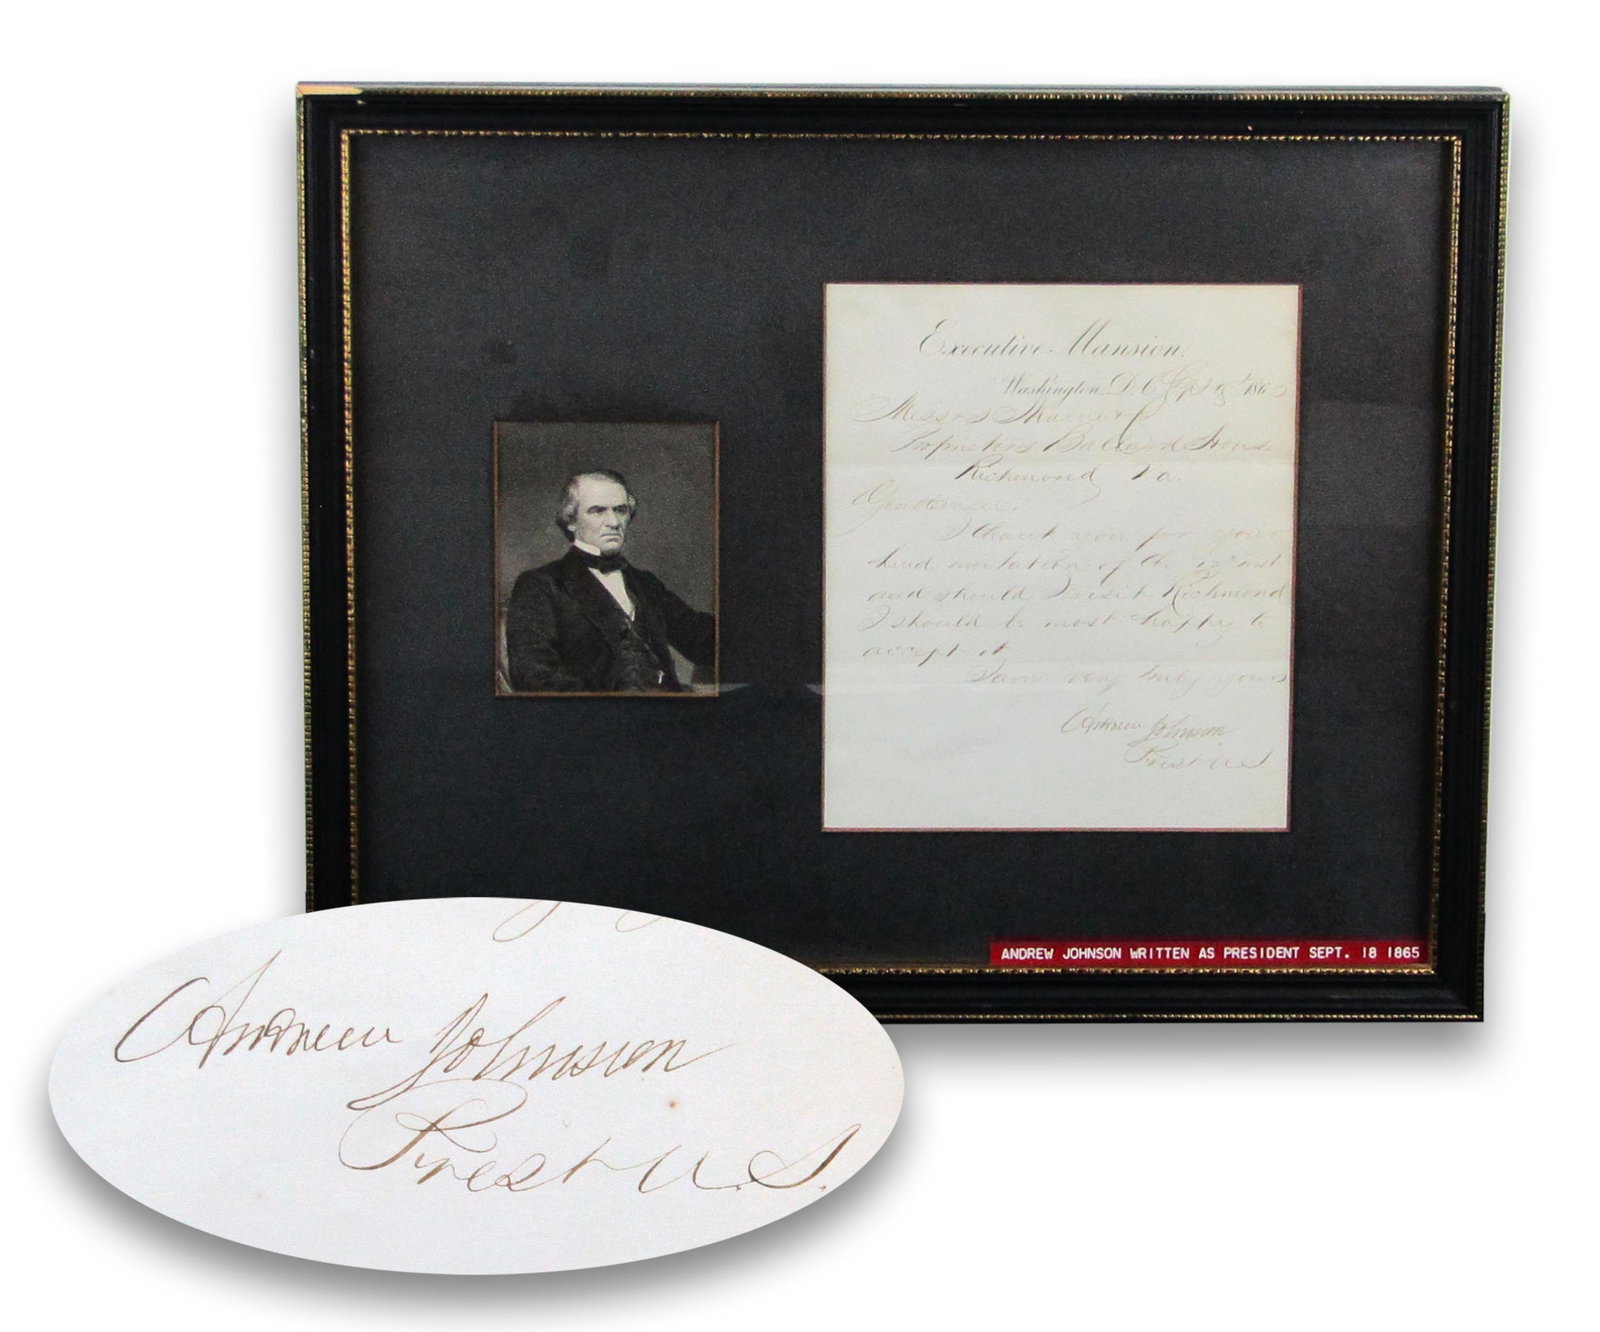 Executive Mansion,
Washington, D.C. Sept 18th 1865
Messrs
Proprietors Ballard House
Richmond Va.
Gentlemen.
I thank you for your
kind invitation of the 13th inst
and should I visit Richmond
I should be most happy to
accept it
I am very truly yours
Andrew Johnson
Prest U.S.
ANDREW JOHNSON WRITTEN AS PRESIDENT SEPT. 18 1865
Andrew Johnson
Prest U.S.